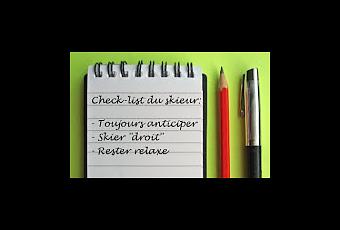 Check-list du skieur:
- Toujours anticiper
- Skier "droit"
- Rester relaxe